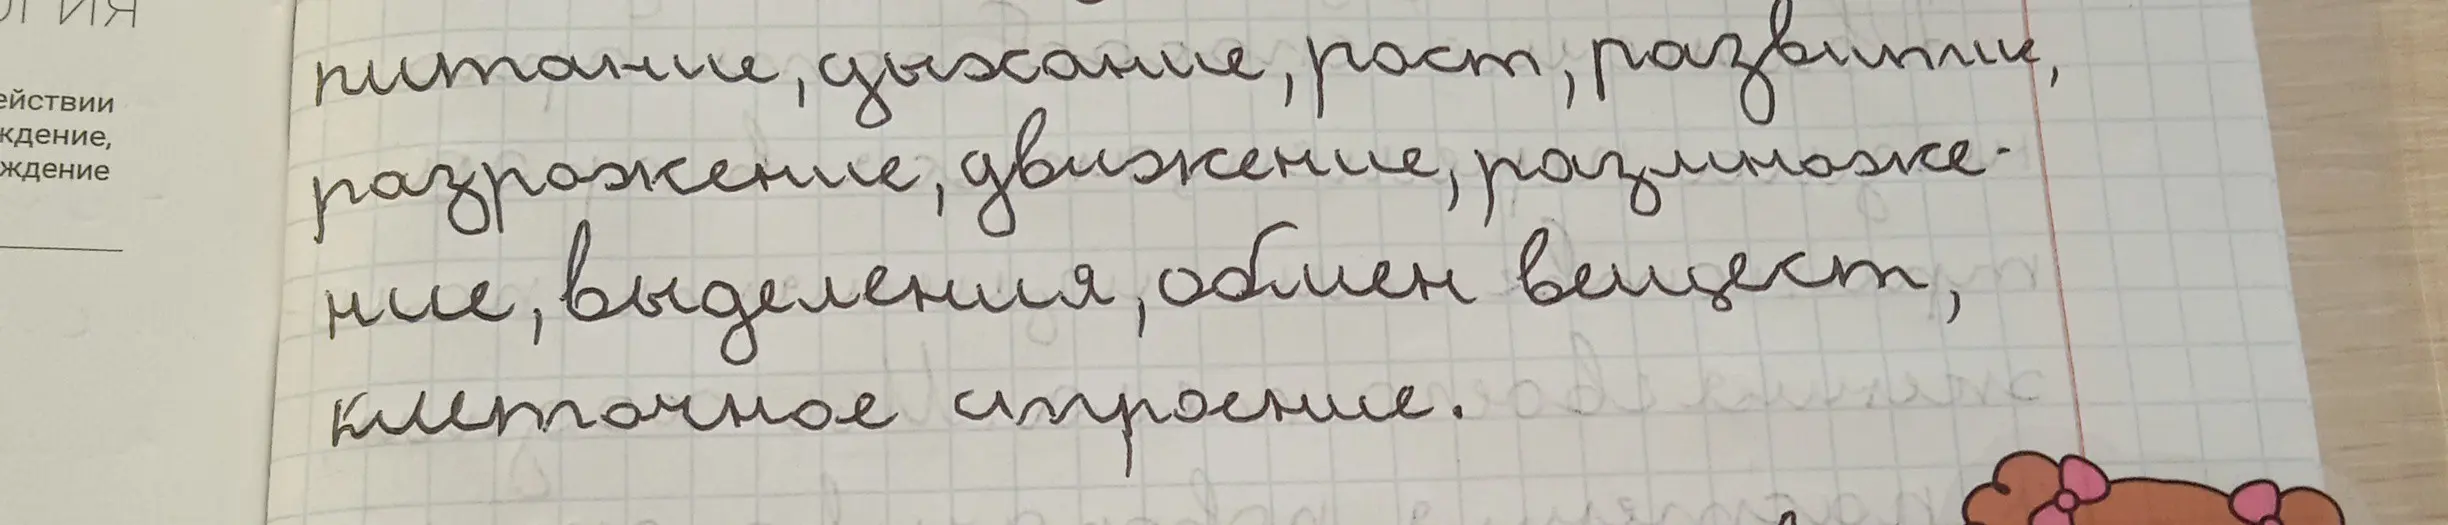 ОГИЯ
ействии
ждение,
ждение
питание, дыхание, рост, развитие,
разрожение, движение, размноже-
ние, выделения, обмен вещест,
клеточное строение.